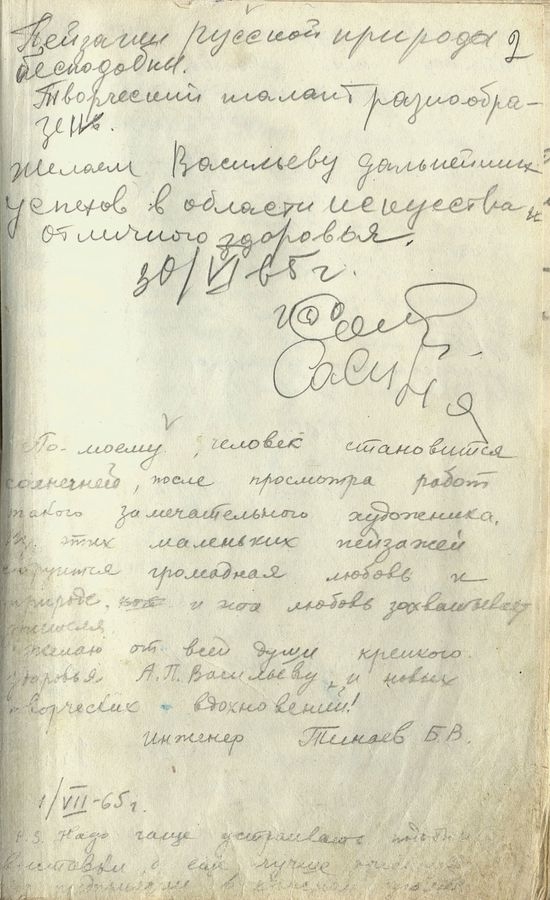 Пейзажи русской природы 2
бесподобны.
Творческий талант разнообра-
зен.
Желаем Васильеву дальнейших
успехов в области искусства и
отличного здоровья.
30/VI 65 г.
По-моему, человек становится
солнечней, после просмотра работ
такого замечательного художника.
этих маленьких пейзажей
громадная любовь к
природе. и эта любовь захватывает
зрителя.
Желаю от всей души крепкого
здоровья А.П. Васильеву, и новых
творческих вдохновений!
инженер Тинаев Б.В.
1/VII-65г.
Надо чаще устраивать
выставки, лучше
в